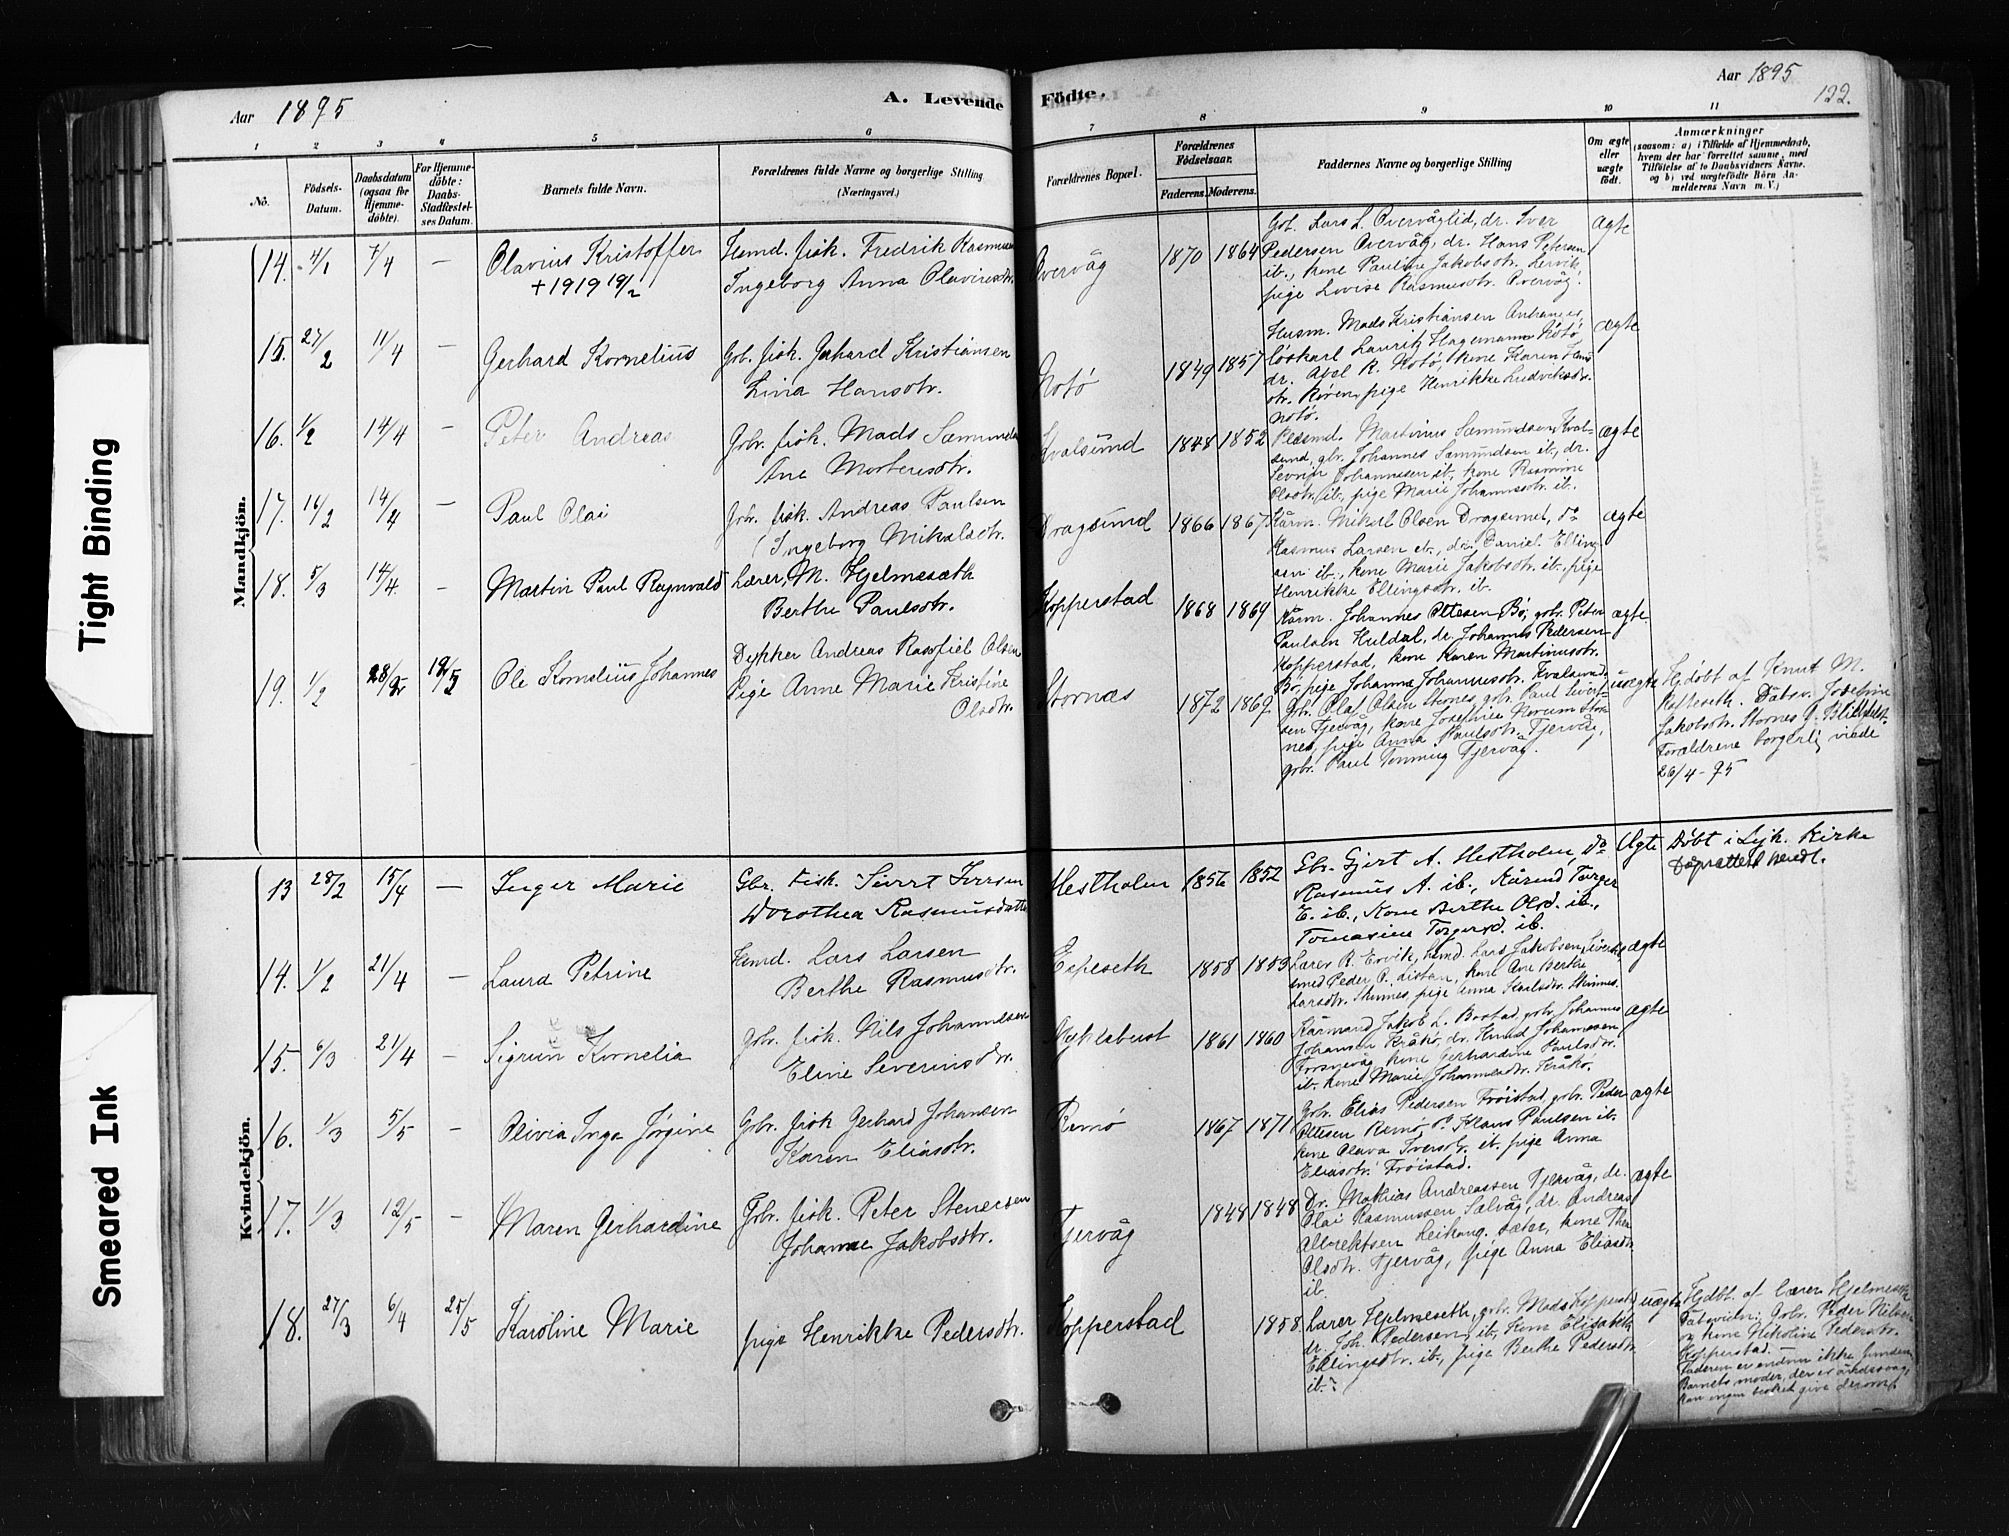 Aar 1895
A. Levende Födte.
Aar 1895
122.
1 2 3 4 5 6 7 8 9 10 11
No.
Födsels-Datum.
Daabsdatum (ogsaa for Hjemme-döbte).
For Hjemme-döbte: Daabs-Stadfæstel-ses Datum.
Barnets fulde Navn.
Forældrenes fulde Navne og borgerlige Stilling (Næringsvei.)
Forældrenes Bopæl.
Forældrenes Födselsaar.
Faderens. Moderens.
Faddernes Navne og borgerlige Stilling
Om ægte eller uægte födt.
Anmærkninger
(saasom: a) i Tilfælde af Hjemmedaab, hvem der har forrettet samme, med Tilföielse af to Daabsvidners Navne. og b) ved uægtefödte Börn An-melderens Navn m. V.)
Mandkjön.
14. 4/1 7/4 — Olavius Kristoffer
+1919 19/2
Fredrik Rasmusen
Ingeborg Anna Olavinesdtr.
Overvåg 1870 1864
Gbr. Lars L. Overvåglid, dr. Iver
Pedersen Overvåg, dr. Hans Petersen
ib., kone Pauline Jakobsdtr. Lervik,
pige Lovise Rasmusdtr. Overvåg.
ægte
15. 27/2 11/4 — Gerhard Kornelius
Gbr. fisk. Gerhard Kristiansen
Livia Hansdtr.
Notø 1849 1857
Husm. Mads Kristiansen
løskarl Laurits Hagemann Notø
dr. Abel R. Notø, kone Karen Hans
dtr. pige Henrikke Ludviksdtr.
Notø.
ægte
16. 1/2 14/4 — Peter Andreas
Gbr. fisk. Mads Samundsen
Ane Mortensdtr.
Kvalsund 1848 1852
Martinus Samundsen Kval-
sund, gbr. Johannes Samundsen ib., dr.
Johannessen ib., kone Rasmine
Olsdtr. ib., pige Marie Johannesdtr. ib.
ægte
17. 16/2 14/4 — Paul Olai
Gbr. fisk. Andreas Paulsen
Ingeborg Mikalsdtr.
Dragsund 1866 1867
Kårm. Mikal Olsen Dragsund, do
Rasmus Larsen ib., dr. Daniel Elling-
sen ib., kone Marie Jakobsdtr. ib., pige
Henrikke Ellingsdtr. ib.
ægte
18. 5/3 14/4 — Martin Paul Ragnvald
Lærer, M. Hjelmeseth
Berthe Paulsdtr.
Kopperstad 1868 1869
Kårm. Johannes Ottesen Bø, gbr. Peter
Paulsen Huldal, dr. Johannes Pedersen
Kopperstad, kone Karen Martinusdtr.
Bø, pige Johanne Johannesdtr. Kvalsund
ægte
19. 1/2 28/2 12/5 Ole Kornelius Johannes
Dykker Andreas Olsen
Pige Anne Marie Kristine
Olsdtr.
Stornæs 1872 1869
Gbr. Olaf Olsen Stornes, gbr. Paul Sivert-
sen Tjervåg, kone Josefine Stor-
nes, pige Anna Paulsdtr. Tjervåg,
gbr. Paul Tjervåg.
uægte
Hjdøbt af Knut M.
Josefine
Jakobsdtr. Stornes
Forældrene borgerlig viede
26/4-95
Kvindekjön.
13 28/2 15/4 — Inger Marie
Gbr. Fisk. Sivert Iversen
Dorothea Rasmusdatter
Hestholm 1856 1852
Gbr. Gjert A. Hestholm, do
Rasmus A. ib., Kårmd Torger
E. ib., Kone Berthe Olsd. ib.,
Tomasine Torgersd. ib.
Ægte
Døbt i Kirke
14. 1/2 21/4 — Laura Petrine
Lars Larsen
Berthe Rasmusdtr.
Espeseth 1858 1853
Lærer R. Ervik, Lars Jakobsen
smed Peder P. Listau, kone Ane Berthe
Larsdtr. pige Anna
ægte
15. 6/3 21/4 — Sigrun Kornelia
Gbr. fisk. Nils Johannesen
Eline Severinsdtr.
Myklebust 1861 1860
Kårmand Jakob L. gbr. Johannes
Johansen Kråkø, dr. Knud Johannesen
kone Gerhardine Paulsdtr.
ib. kone Marie Johannesdtr. Kråkø.
ægte
16. 1/3 5/5 — Olivia Inga Jørgine
Gbr. fisk Gerhard Johansen
Karen Eliasdtr.
Remø 1867 1871
Gbr. Elias Pedersen Frøistad, gbr. Peder
Ottesen Remø, do Klaus Paulsen ib.
kone Olava Iversdtr. ib. pige Anna
Eliasdtr. Frøistad.
ægte
17. 1/3 12/5 — Maren Gerhardine
Gbr. fisk. Peter Stenersen
Johanne Jakobsdtr.
Tjervåg 1848 1848
Dr. Mathias Andreassen Tjervåg, dr.
Olai Rasmussen Sælvåg, dr. Andreas
Albrektsen Leikang. sæter, kone
Olsdtr. Tjervåg, pige Anna Eliasdtr.
ib.
ægte
18. 27/3 6/4 25/5 Karoline Marie
pige Henrikke Pedersdtr.
Kopperstad 1858.
Lærer Hjelmeseth, gbr. Mads Kopperstad
dr. Joh. Pedersen ib., kone Elisabeth
Ellingsdtr. ib., pige Berthe Pedersdtr.
ib.
uægte
Hjdbt. af lærer Hjelmeseth
Gbr. Peder Nilsen
og kone Nikoline Pedersdtr.
Kopperstad. —
Faderen er endnu ikke funden
Barnets moder, der er åndssvag,
kan ingen besked give derom.
Tight Binding
Smeared Ink